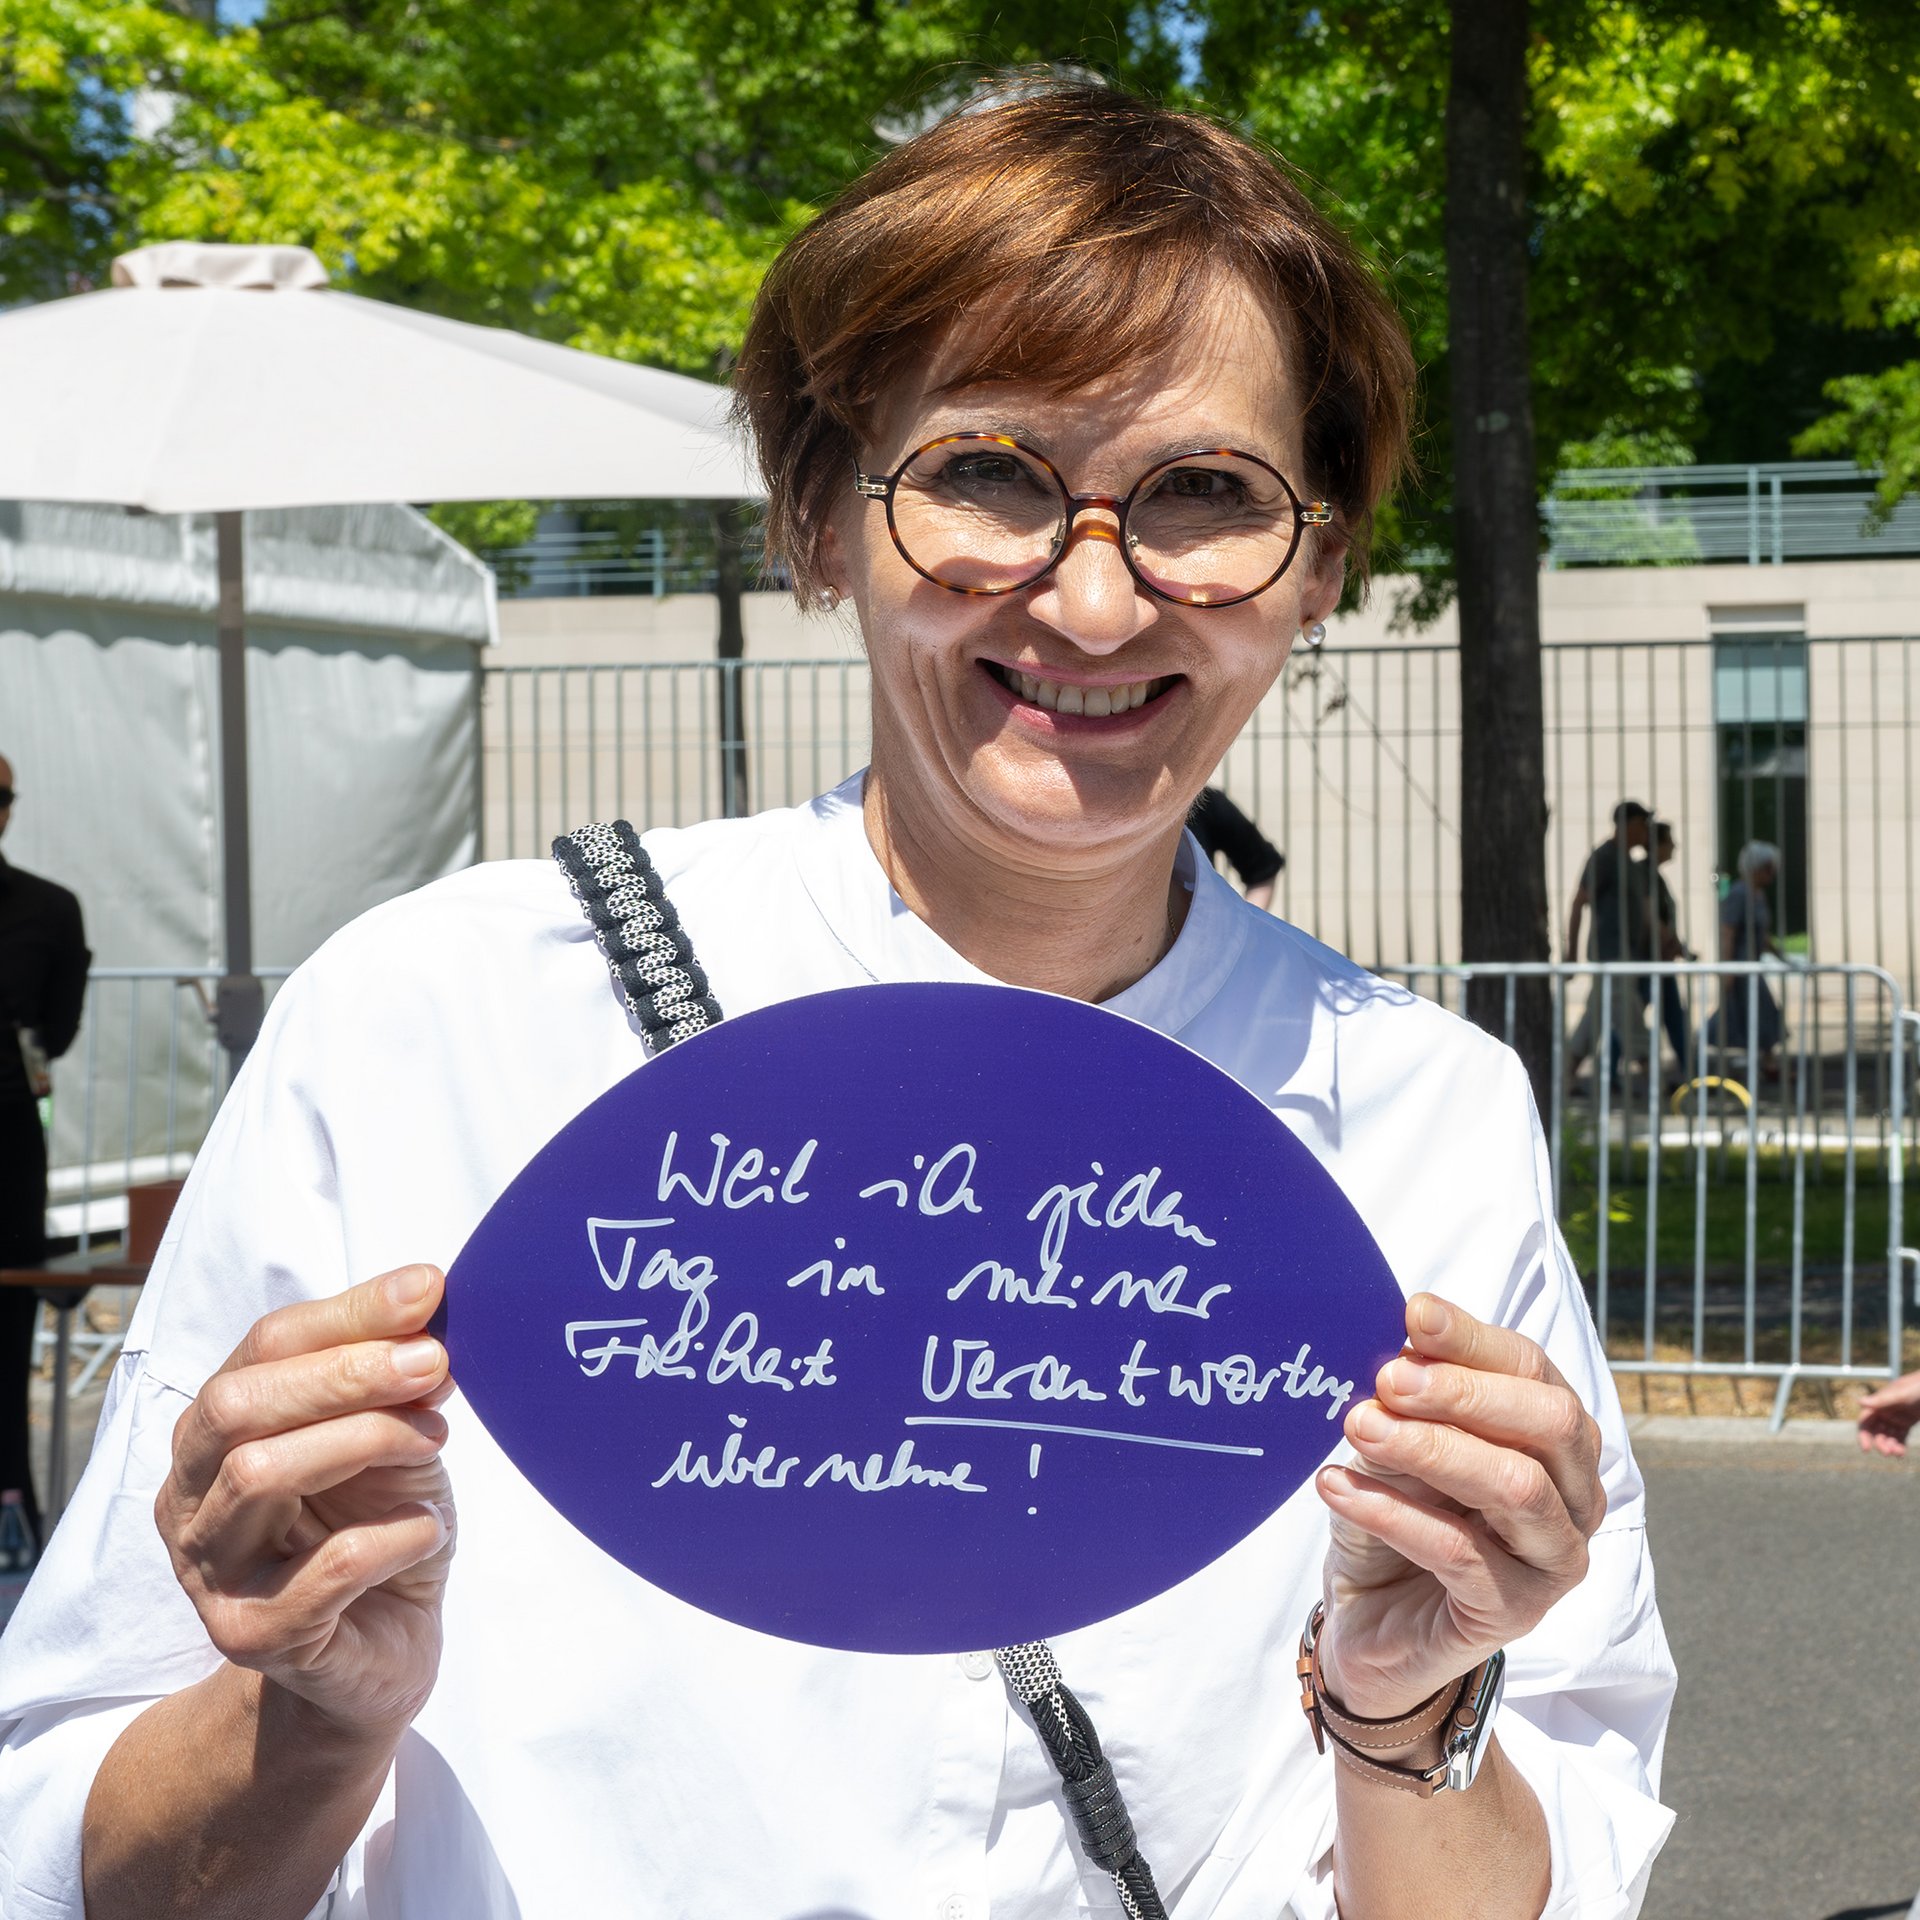 Weil ich jeden
Tag in meiner
Freiheit Verantwortung
übernehme !